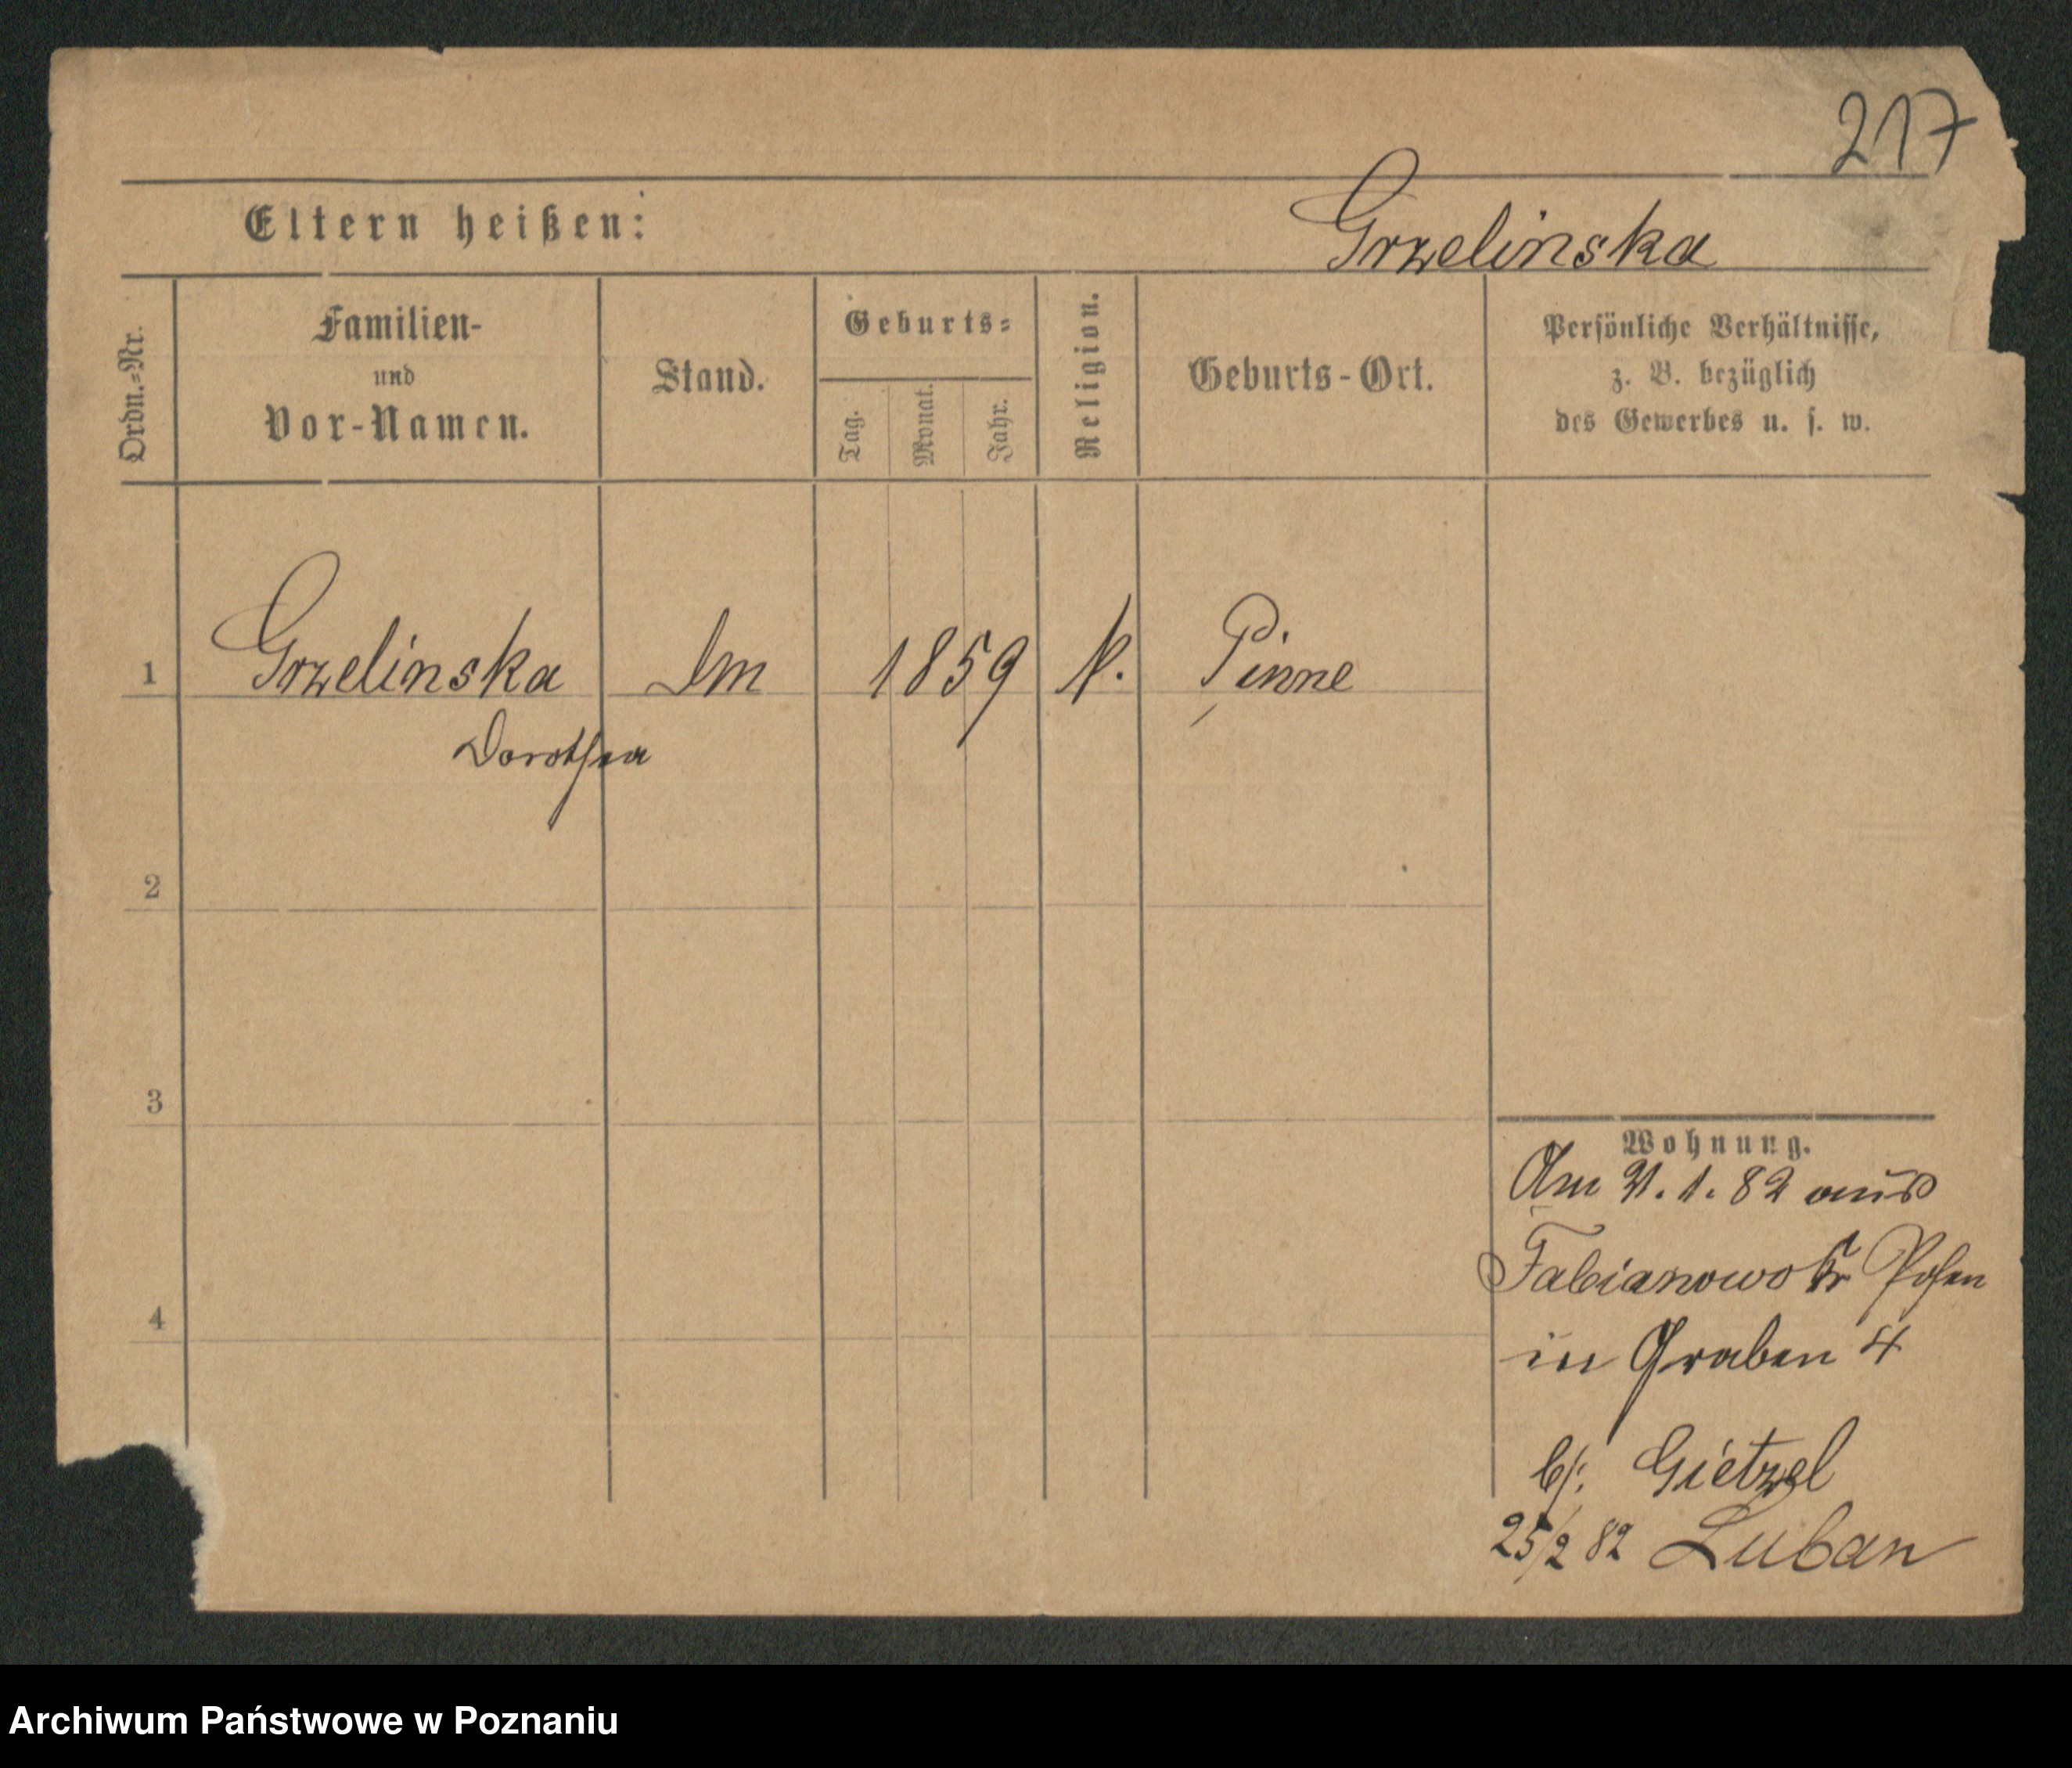 217
Eltern heißen:
Grzelinska
Ordn.=Nr.
Familien-
und
Vor-Namen.
Stand.
Geburts=
Tag.
Monat.
Jahr.
Religion.
Geburts-Ort.
Persönliche Verhältnisse,
z. B. bezüglich
des Gewerbes u. s. w.
1 Grzelinska 1859 Pinne
Dorothea
2
3
4
Wohnung.
Am 21. 1. 82 aus
Fabianowo Kr Posen
in Graben 4
b/: Gietzel
25/2 82 Luban
Archiwum Państwowe w Poznaniu